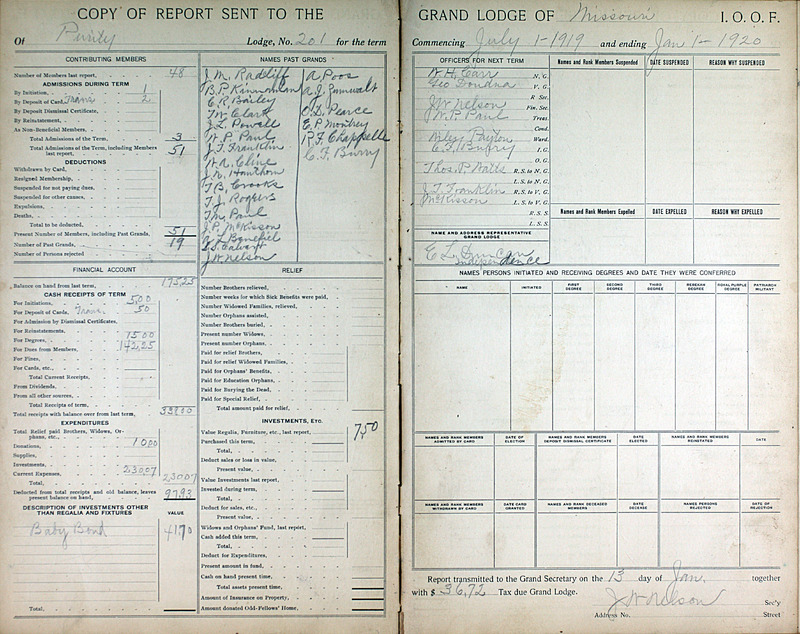 COPY OF REPORT SENT TO THE
Of Purity Lodge, No. 201 for the term
CONTRIBUTING MEMBERS
Number of Members last report, 48
ADMISSIONS DURING TERM
By Initiation, 1
By Deposit of Card, Trans 2
By Deposit Dismissal Certificate,
By Reinstatement,
As Non-Beneficial Members,
Total Admissions of the Term, 3
Total Admissions of the Term, including Members
last report, 51
DEDUCTIONS
Withdrawn by Card,
Resigned Membership,
Suspended for not paying dues,
Suspended for other causes,
Expulsions,
Deaths,
Total to be deducted,
Present Number of Members, including Past Grands, 51
Number of Past Grands, 19
Number of Persons rejected
NAMES PAST GRANDS
J. M. Radliff
B. P. Kinnaman
E. R. Bailey
T. M. Clark
J. L. Powell
W. P. Paul
J. T. Franklin
W. R. Cline
J. R. Hawthorn
T. B. Crooks
T. J. Rogers
T. M. Paul
J. P. McKisson
J. W. Nelson
A. Poos
A. J. Zumwalt
O. D. Pearce
E. P. Montrey
R. F. Chappelle
C. F. Burry
FINANCIAL ACCOUNT
Balance on hand from last term, 175.25
CASH RECEIPTS OF TERM
For Initiations, 5.00
For Deposit of Cards, Trans. 50
For Admission by Dismissal Certificates,
For Reinstatements,
For Degrees, 15.00
For Dues from Members, 142.25
For Fines,
For Cards, etc.,
Total Current Receipts,
From Dividends,
From all other sources,
Total Receipts of term,
Total receipts with balance over from last term, 338.00
EXPENDITURES
Total Relief paid Brothers, Widows, Or-
phans, etc.,
Donations, 10.00
Supplies,
Investments,
Current Expenses, 230.07
Total, 230.07
Deducted from total receipts and old balance, leaves
present balance on hand, 97.93
DESCRIPTION OF INVESTMENTS OTHER
THAN REGALIA AND FIXTURES
VALUE
Baby Bond 41.70
Total,
RELIEF
Number Brothers relieved,
Number weeks for which Sick Benefits were paid,
Number Widowed Families, relieved,
Number Orphans assisted,
Number Brothers buried,
Present number Widows,
Present number Orphans,
Paid for relief Brothers,
Paid for relief Widowed Families,
Paid for Orphans' Benefits,
Paid for Education Orphans,
Paid for Burying the Dead,
Paid for Special Relief,
Total amount paid for relief,
INVESTMENTS, Etc.
Value Regalia, Furniture, etc., last report, 750
Purchased this term,
Total,
Deduct sales or loss in value,
Present value,
Value Investments last report,
Invested during term,
Total,
Deduct for sales, etc.,
Present value,
Widows and Orphans' Fund, last report,
Cash added this term,
Total,
Deduct for Expenditures,
Present amount in fund,
Cash on hand present time,
Total assets present time,
Amount of Insurance on Property,
Amount donated Odd-Fellows' Home,
GRAND LODGE OF Missouri I. O. O. F.
Commencing July 1-1919 and ending Jan 1- 1920
OFFICERS FOR NEXT TERM
W. H. Carr N. G.
Geo Doudna V. G.
R. Sec.
J W Nelson Fin. Sec.
W. P. Paul Treas.
Cond.
Ward.
I. G.
O. G.
Thos. P. Watts R. S. to N. G.
L. S. to N. G.
J. T. Franklin R. S. to V. G.
McKisson L. S. to V. G.
R. S. S.
L. S. S.
Names and Rank Members Suspended
DATE SUSPENDED
REASON WHY SUSPENDED
Names and Rank Members Expelled
DATE EXPELLED
REASON WHY EXPELLED
NAME AND ADDRESS REPRESENTATIVE
GRAND LODGE
E L Duncan
Independence
NAMES PERSONS INITIATED AND RECEIVING DEGREES AND DATE THEY WERE CONFERRED
NAME
INITIATED
FIRST DEGREE
SECOND DEGREE
THIRD DEGREE
REBEKAH DEGREE
ROYAL PURPLE DEGREE
PATRIARCH MILITANT
NAMES AND RANK MEMBERS ADMITTED BY CARD
DATE OF ELECTION
NAMES AND RANK MEMBERS DEPOSIT DISMISSAL CERTIFICATE
DATE ELECTED
NAMES AND RANK MEMBERS REINSTATED
DATE
NAMES AND RANK MEMBERS WITHDRAWN BY CARD
DATE CARD GRANTED
NAMES AND RANK DECEASED MEMBERS
DATE DECEASE
NAMES PERSONS REJECTED
DATE OF REJECTION
Report transmitted to the Grand Secretary on the 13 day of Jan, together
with $ 36.72 Tax due Grand Lodge.
J W Nelson Sec'y
Address No. Street